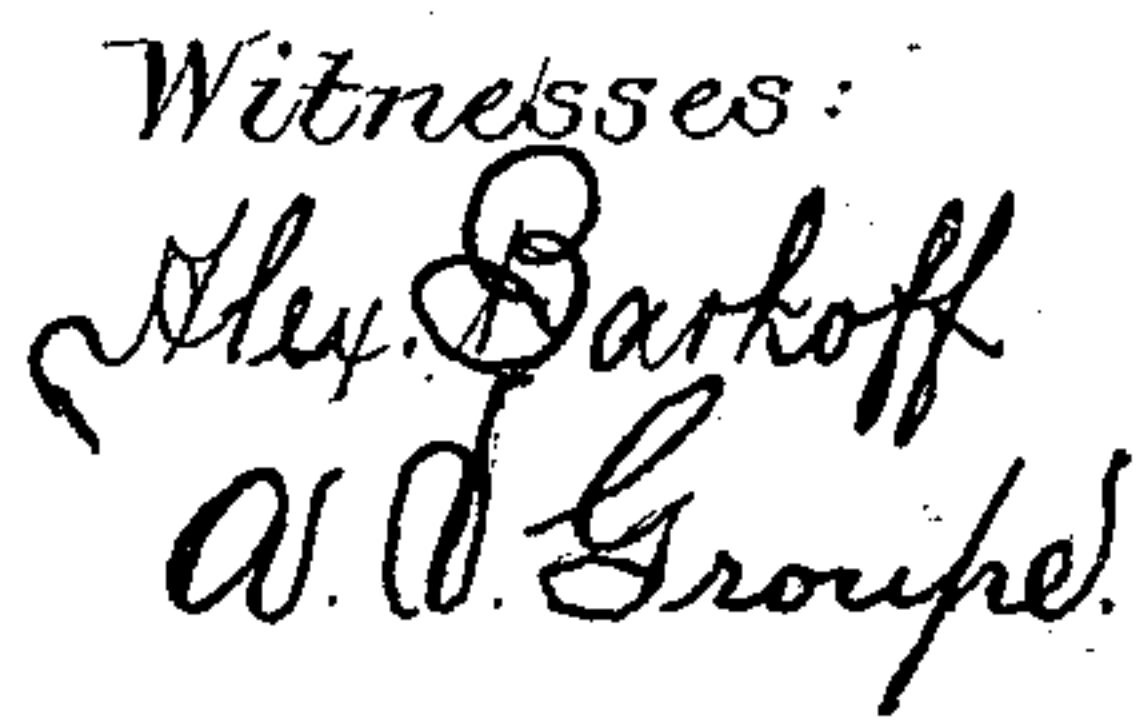 Witnesses:
Alex. Barkoff
A. V. Groupe.